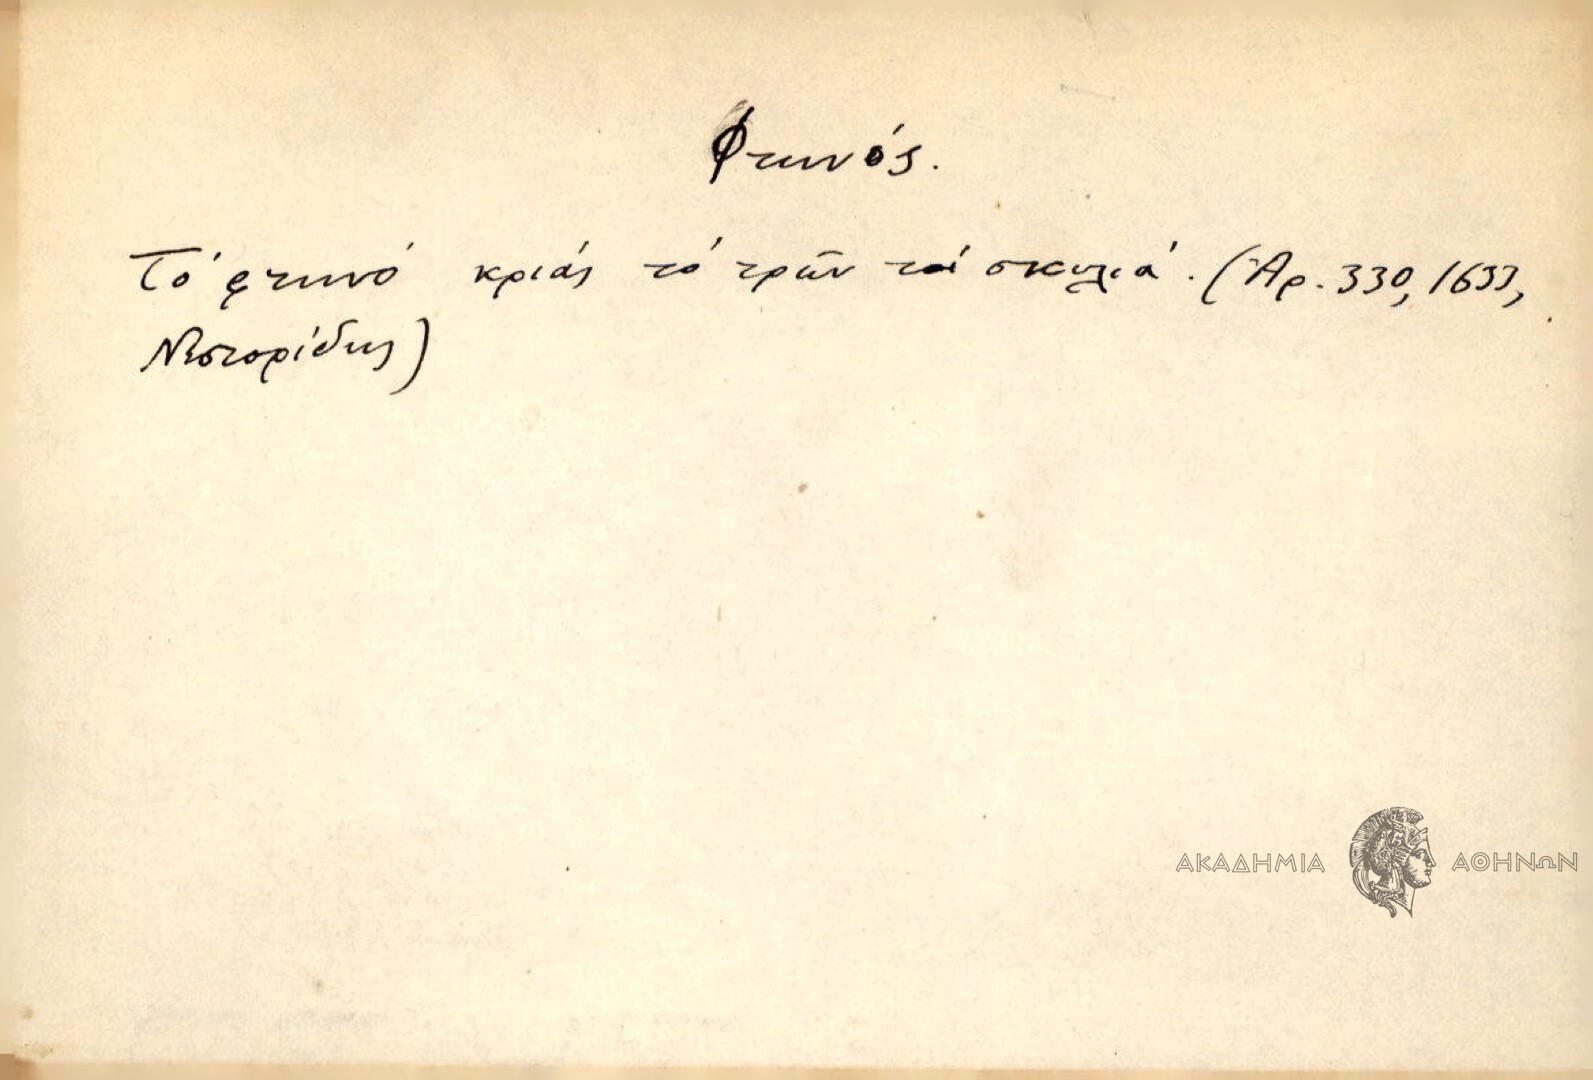 Φτηνός.
Τό φτηνό κριάς τό τρῶν τά σκυλιά. (Ἀρ. 330, 1633,
Νεστορίδης)
ΑΚΑΔΗΜΙΑ ΑΘΗΝΩΝ